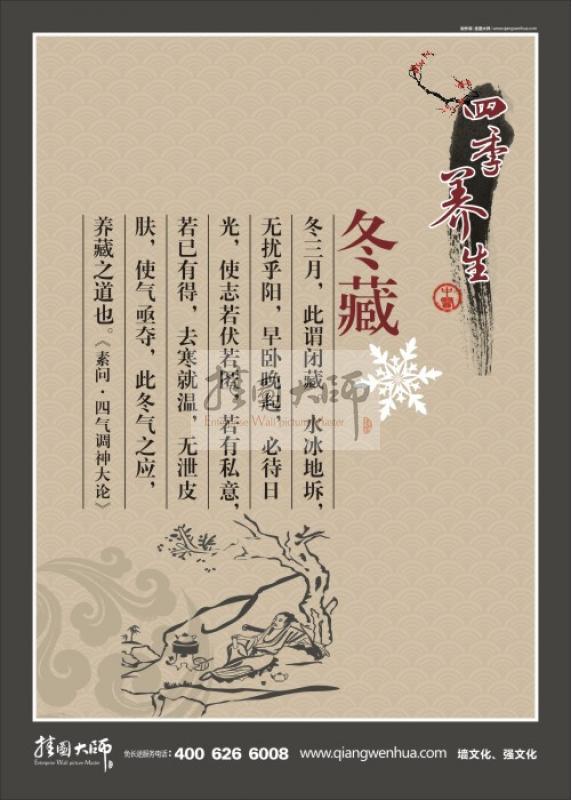 www.qiangwenhua.com
四季养生
冬藏
冬三月，此谓闭藏 水冰地坼，
无扰乎阳，早卧晚起，必待日
光，使志若伏若匿，若有私意，
若已有得，去寒就温，无泄皮
肤，使气亟夺，此冬气之应，
养藏之道也。《素问·四气调神大论》
挂图大师
Enterprise Wall picture Master
挂图大师
Enterprise Wall picture Master
免长途服务电话：400 626 6008 www.qiangwenhua.com 墙文化、强文化